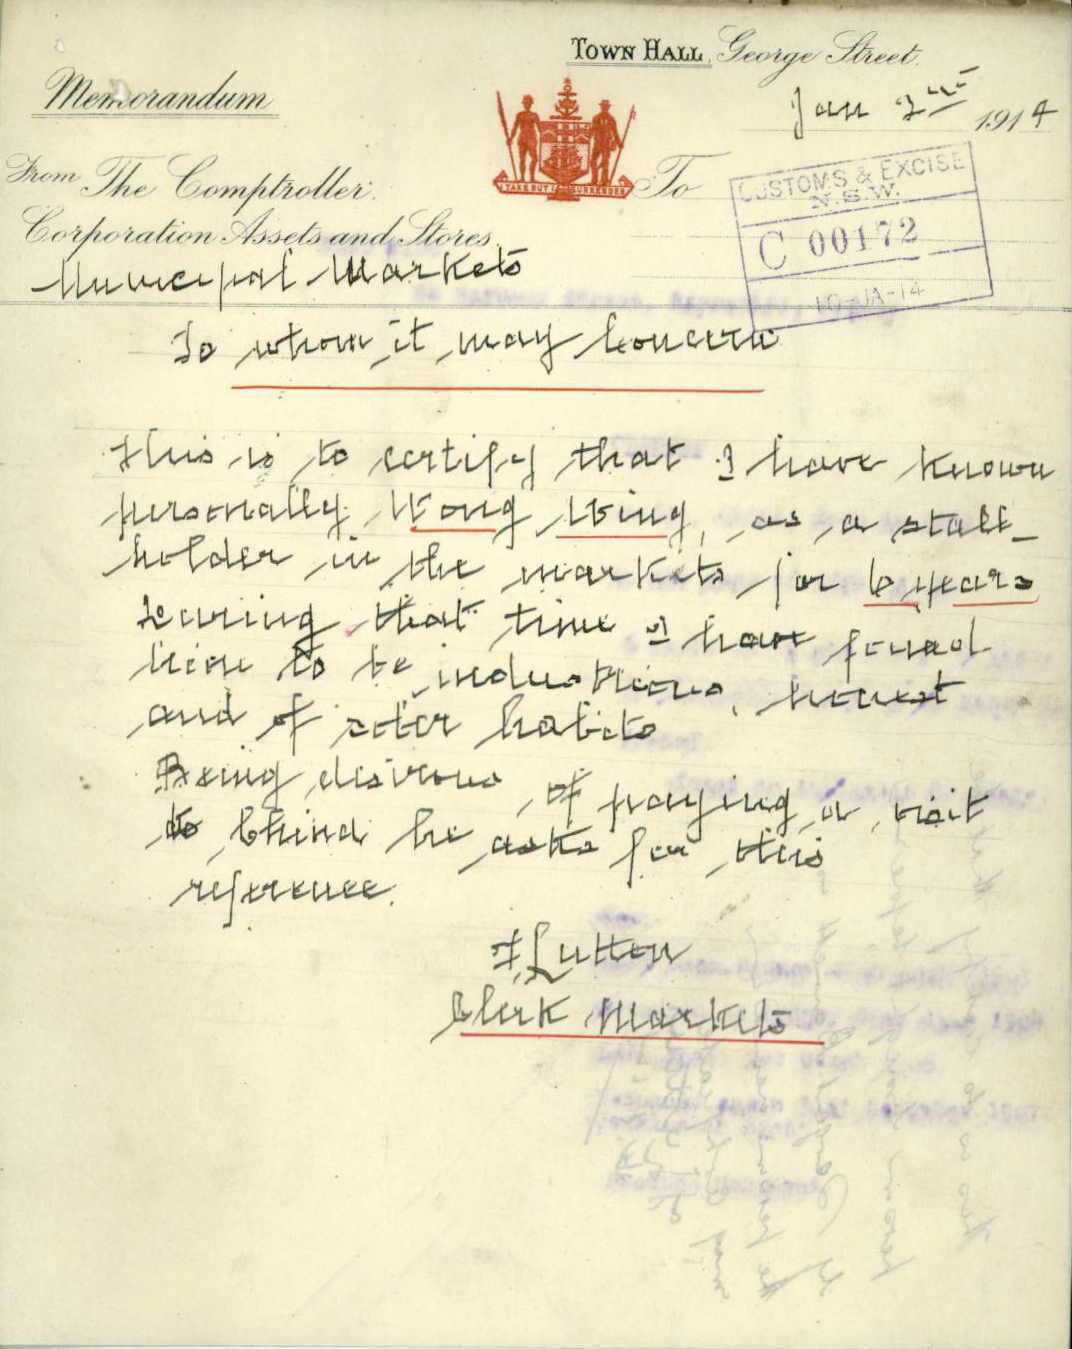 TOWN HALL, George Street.
Memorandum
Jan 2nd 1914
From The Comptroller.
To
Corporation Assets and Stores,
Municipal Markets
I TAKE BUT I SURRENDER
CUSTOMS & EXCISE
N.S.W.
C 00172
10-JA-14
To whom it may Concern
This is to certify that I have known
personally Wong Wing, as a stall-
holder in the markets for 6 years
During that time I have found
him to be industrious, honest
and of sober habits
Being desirous of paying a visit
to China he asks for this
reference.
Lutton
Clerk Markets